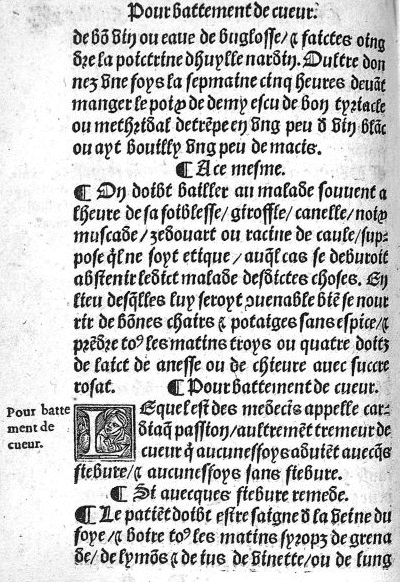 Pour battement de cueur.
de bõ vin ou eaue de buglosse/ ⁊ faictes oing
dre la poictrine dhuylle nardin. Oultre don
nez vne foys la sepmaine cinq heures deuãt
manger le poix de demy escu de bon tyriacle
ou methridal detrẽpe en vng peu d̃ vin blãc
ou ayt bouilly vng peu de macis.
¶ A ce mesme.
¶ On doibt bailler au malade souuent a
lheure de sa foiblesse/ giroffle/ canelle/ noix
muscade/ zedouart ou racine de caule/ sup-
pose q̃l ne soyt etique/ auq̃l cas se deburoit
abstenir ledict malade desdictes choses. En
lieu desq̃lles luy seroyt ꝯuenable biẽ se nour
rir de bõnes chairs ⁊ potaiges sans espice/ ⁊
prẽdre toꝰ les matins troys ou quatre doitz
de laict de anesse ou de chieure auec succre
rosat. ¶ Pour battement de cueur.
Pour batte
ment de
cueur.
LEquel est des medecĩs appelle car-
diaq̃ passion/ aultremẽt tremeur de
cueur q̃ aucunesfoys aduiẽt auecq̃s
fiebure/ ⁊ aucunesfoys sans fiebure.
¶ Si auecques fiebure remede.
¶ Le patiẽt doibt estre saigne d̃ la veine du
foye/ ⁊ boire toꝰ les matins syropz de grena
de/ de lymõs/ ⁊ de ius de vinette/ ou de lung